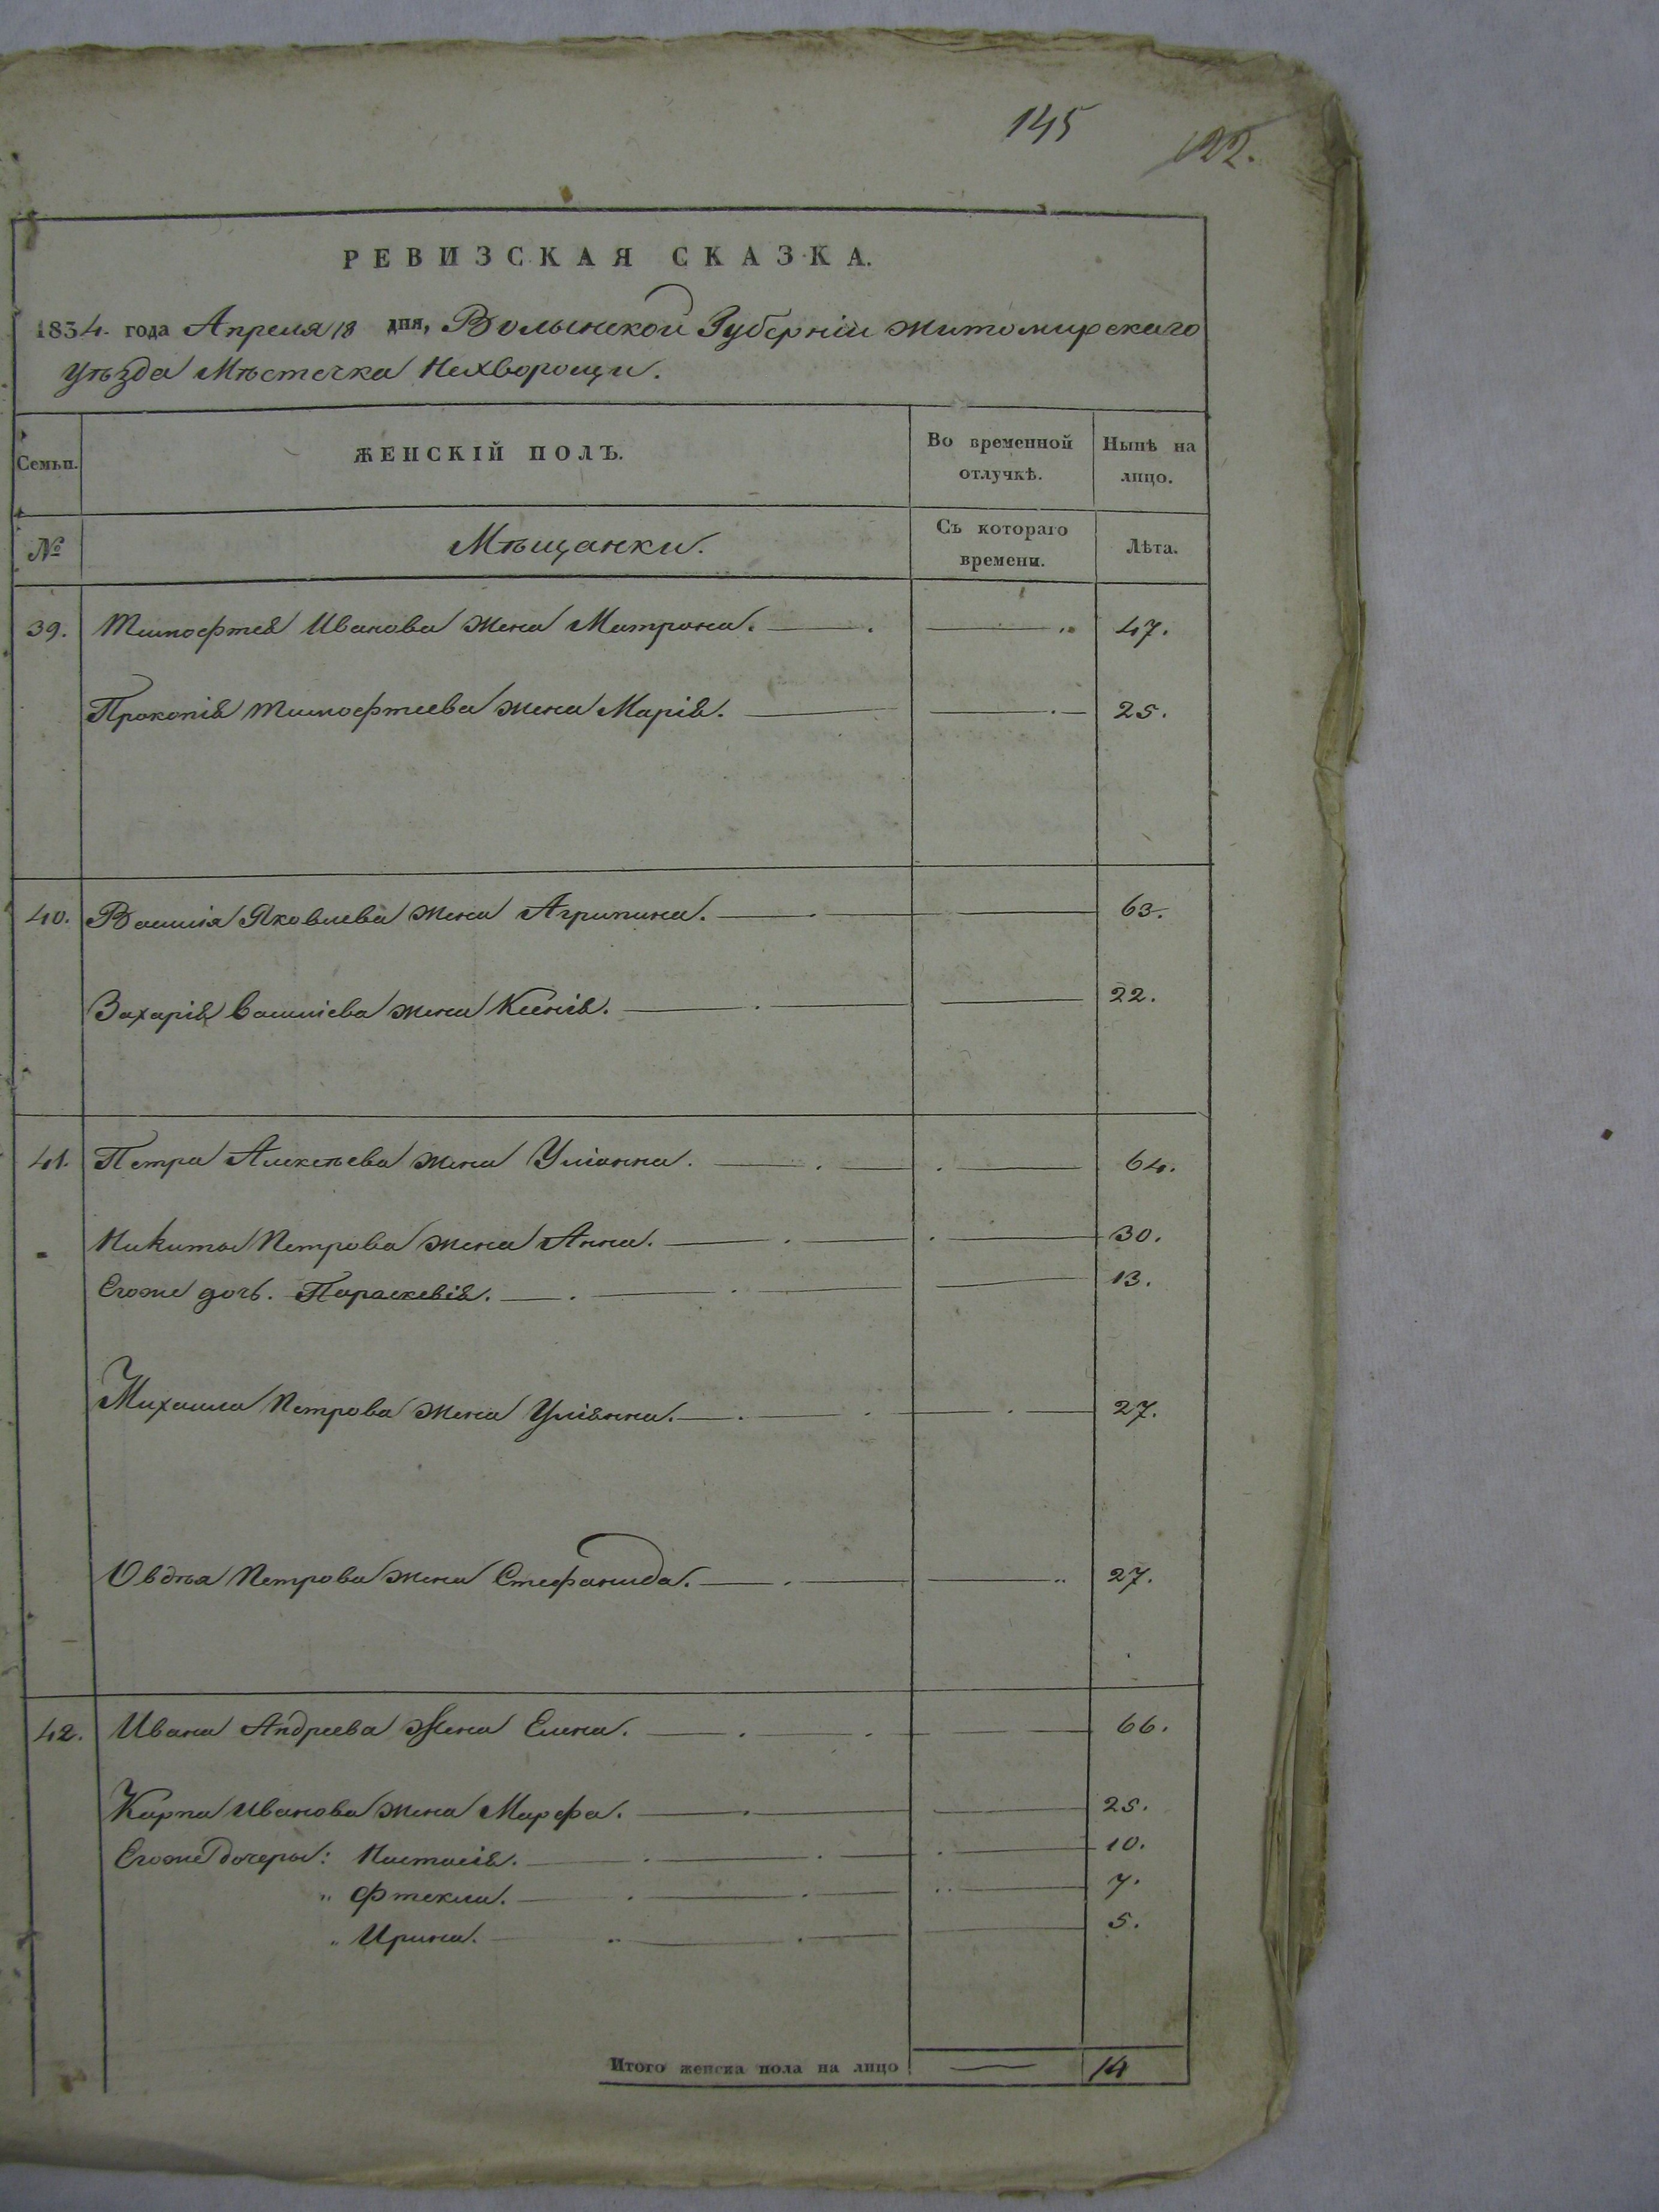 145 122.
РЕВИЗСКАЯ СКАЗКА.
1834. года Апреля 18 дня, Волынской Губерніи Житомирскаго
уѣзда Мѣстечка Нехворощи.
Семьи. ЖЕНСКІЙ ПОЛЪ. Во временной отлучкѣ. Нынѣ на лицо.
№ Мѣщанки. Съ котораго времени. Лѣта.
39. Тимофтея Иванова жена Матрона. 47.
Прокопія Тимофтеева жена Марія. 25.
40. Василія Яковлева жена Агрипина. 63.
Захарія Василіева жена Ксенія. 22.
41. Петра Алексѣева жена Уліанна. 64.
Никиты Петрова жена Анна. 30.
Егоже дочь. Параскевія. 13.
Михаила Петрова жена Уліянна. 27.
Овдѣя Петрова жена Стефанида. 27.
42. Ивана Андреева Жена Елена. 66.
Карпа Иванова жена Марфа. 25.
Егоже дочеры: Настасія. 10.
" Фтекла. 7.
" Ирина. 5.
Итого женска пола на лицо 14